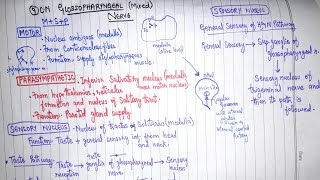 CN GLOSSOPHARYNGEAL (Mixed)
NERVE
M+S+P
MOTOR
• Nucleus ambigus (medulla)
• From corticonuclear fibres
• Function: Supply stylopharyngeus muscle
PARASYMPATHETIC
• Inferior Salivatory nucleus (medulla)
• From hypothalamus, reticular formation and nucleus of Solitary tract.
• Function: Parotid gland supply.
SENSORY NUCLEUS
• Nucleus of tractus of Solitarius (medulla)
Function:- Taste + general sensory inf. from head and neck.
→ Taste Pathway:-
Taste reception → nerve → ganglia of glossopharyngeal nerve → Sensory nucleus
medulla
SENSORY NUCLEUS
General Sensory of H&N Pathway
General Sensory → Sup: ganglia of glossopharyngeal n.
↓
Sensory nucleus of trigeminal nerve and then its path is followed.